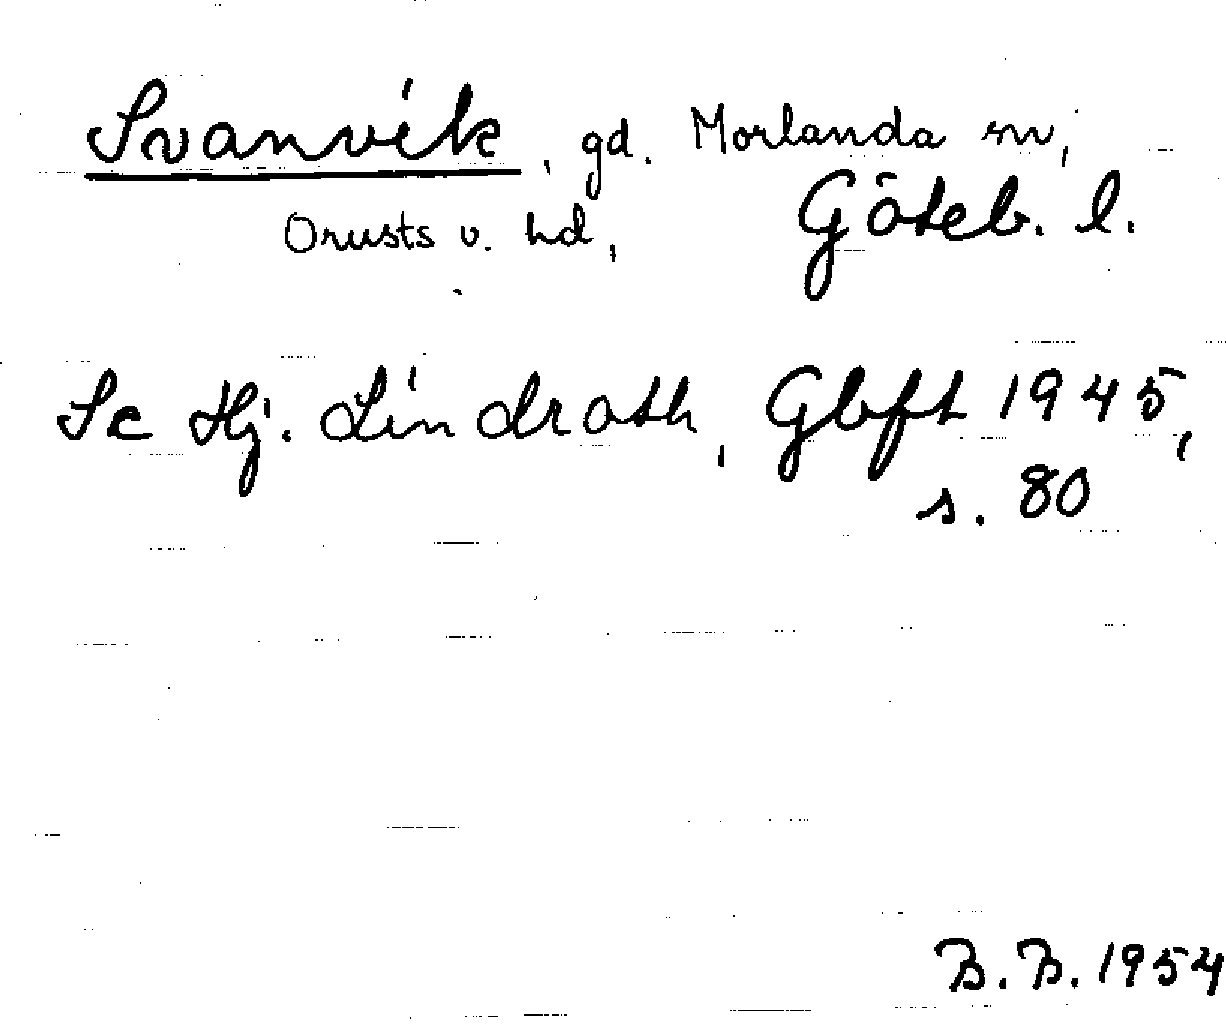 Svanvik, gd. Morlanda sn,
Orusts v. hd, Göteb. l.
Se Hj. Lindroth, Gbft 1945,
s. 80
B.B. 1954